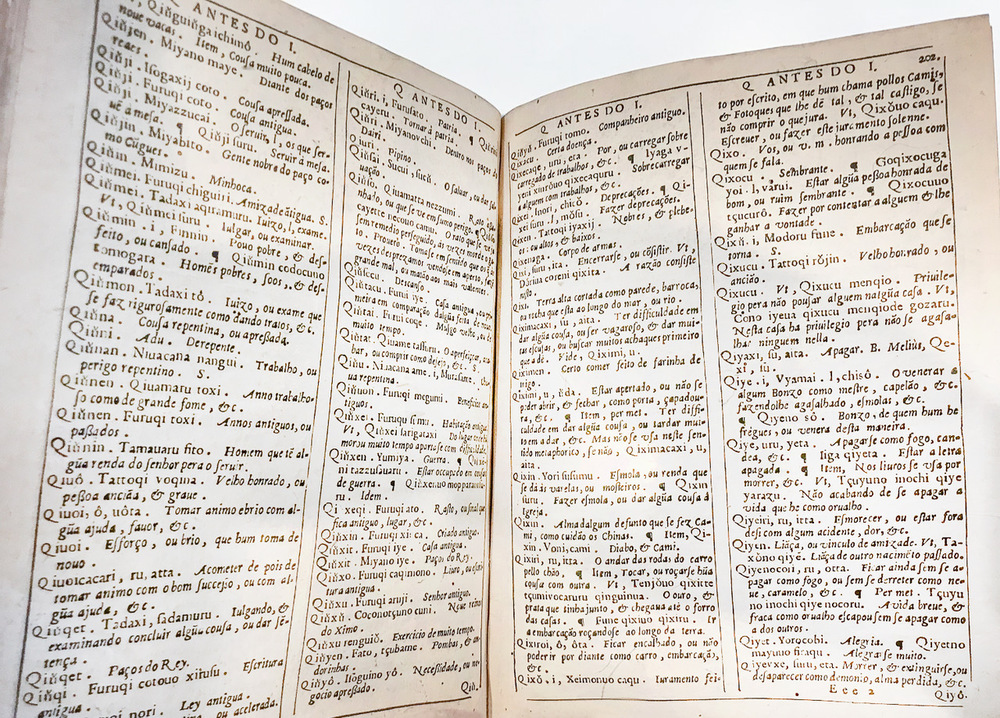 Q ANTES DO I.
Qiũguiũga ichimõ. Hum cabelo de
noue vacas. Item, Cousa muito pouca.
Qiũjen. Miyano maye. Diante dos paços
reaes.
Qiũji. Isogaxij coto. Cousa apressada.
Qiũji. Furuqi coto. Cousa antiga.
Qiũji. Miyazzucai. O seruir, l, os que ser-
uẽ a mesa. ¶ Qiũji suru. Seruir â mesa.
Qiũjin. Miyabito. Gente nobre do paço co-
mo Cugues.
Qiũin. Mimizu. Minhoca.
Qiũmei. Furuqi chiguiri. Amizade ãtigua. S.
Qiũmei. Tadaxi aqiramuru. Iuizo, l, exame.
Vt, Qiũmei suru. Iulgar, ou examinar.
Qiũmin. i, Finnin. Pouo pobre, & des-
feito, ou cansado. ¶ Qiũmin codocuno
tomogara. Homẽs pobres, soos, & des-
emparados.
Qiũmon. Tadaxi tô. Iuizo, ou exame que
se faz rigurosamente como dando tratos, &c.
Qiũna. Cousa repentina, ou apressada.
Qiũni. Adu. Derepente.
Qiũnan. Niuacana nangui. Trabalho, ou
perigo repentino. S.
Qiũnen. Qiuamaru toxi. Anno trabalho-
so como de grande fome, &c.
Qiũnen. Furuqi toxi. Annos antiguos, ou
passados.
Qiũnin. Tamauaru fito. Homem que tẽ al-
gũa renda do senhor pera o seruir.
Qiuô. Tattoqi voqina. Velho honrado, ou
pessoa anciãa, & graue.
Qiuoi, ô, uôta. Tomar animo ebrio com al-
gũa ajuda, fauor, &c.
Qiuoi. Esforço, ou brio, que hum toma de
nouo.
Qiuoicacari, ru, atta. Acometer de pois de
tomar animo com o bom sucesso, ou com al-
gũa ajuda, &c.
Qiũqet. Tadaxi, sadamuru. Iulgando, &
examinando concluir algũ cousa, ou dar sẽ-
tença.
Qiũqet. Paços do Rey.
Qiũqi. Furuqi cotouo xirusu. Escritura
antigua.
nori. Ley antigua.
ou acelerada.
Q ANTES DO I.
Qiũri, i, Furusato. Patria. ¶ Qiũri
cayeru. Tornar â patria.
Qiũri. Miyanovchi. Dentro nos paços do
Dairi.
Qiuri. Pipino.
Qiũsai. Sucui, sucũ. O saluar, ou dar sal-
uação.
Qiũso. Qiuamatta nezzumi. Rato
ou que se ve em sumo perigo. ¶ Qiũso
cayette necouo camu. O rato que se vé
sem remedio perseguido, âs vezes morde o ga-
to. Prouerb. Tomase em sentido que os que âs
vezes desprezamos vendose em aperto, fazem
grande mal, ou matão aos mais valentes.
Qiũsocu. Descanso.
Qiũtacu. Furui iye. Casa antigua, ou pri-
meira em comparação dalgũa feita de nouo.
Qiũtai. Furui coqe. Musgo velho, ou de
muito tempo.
Qiũtat. Qiuame tassuru. O aperfeiçoar, aca-
bar, ou comprir como desejo, &c.
Qiũu. Niuacana ame, i, Murasame. Chu-
ua repentina.
Qiũuon. Furuqi megumi. Beneficios an-
tiguos.
Qiũxe. Furuqi sumu. Habitação antigua.
Vt, Qiũxei satigataxi. Do lugar onde hũ
morou muito tempo aparta-se com difficuldade.
Qiũxen. Yumiya. Guerra. ¶ Qiũxen
ni tazzusauaru. Estar occupado em cousas
de guerra. ¶ Qiũxenuo moppara
ru. Idem.
Qi xeqi. Furuqi ato. Rasto, ou sinal que
fica antiguo, lugar, &c.
Qiũxin. Furuqi xi ca. Criado antiguo.
Qiũxit. Furuqi iye. Casa antigua.
Qiũxit. Miyano iye. Paços do Rey.
Qiũxo. Furuqi caqimono. Liuro, ou escri-
tura antigua.
Qiũxu. Furuqi aruji. Senhor antiguo.
Qiũxũ. Coconotçuno cuni. Noue reinos
do Ximo.
Qiũxu renguiô. Exercicio de muito tempo.
Qiũyen. Fato, tçubame. Pombas, & an-
dorinhas.
Qiũyô. Isôguino yô. Necessidade, ou ne-
gocio apressado.
Qiũ.
Q ANTES DO I.
Qiũyũ. Furuqi tomo. Companheiro antiguo.
Qixacu. Certa doença.
Qixecaqe, uru, eta. Por, ou carregar sobre
carregado de trabalhos, &c. ¶ Iyaga v-
yeni xinrôuo qixecaquru. Sobrecarregar
a alguem com trabalhos, &c.
Qixei. Inori, chicô. Deprecações. ¶ Qi-
xei suru. l, môsu. Fazer deprecações.
Qixen. Tattoqi iyaxij. Nobres, & plebe-
os, ou altos, & baixos.
Qixenga. Corpo de armas.
Qixi, suru, ita. Encerrarse, ou cõsistir. Vt,
Dôriua coreni qixita. A razão consiste
nesto.
Qixi. Terra alta cortada como parede, barroca,
ou rocha que esta ao longo do mar, ou rio.
Qiximacaxi, su, aita. Ter difficuldade em
dar algũa cousa, ou ser vagaroso, & dar mui-
tas escusas, ou buscar muitos achaques primeiro
que a de. Vide, Qiximi, u.
Qiximen. Certo comer feito de farinha de
trigo.
Qiximi, u, ũda. Estar apertado, ou não se
poder abrir, & fechar, como porta, çapadou-
ra, &c. ¶ Item, per met. Ter diffi-
culdade em dar algũa cousa, ou tardar mui-
to em a dar, &c. Mas não se vsa neste sen-
tido metaphorico, se não, Qiximacaxi, u,
aita.
Qixin. Yori susumu. Esmola, ou renda que
se dâ âs varelas, ou mosteiros. ¶ Qixin
suru. Fazer esmola, ou dar algũa cousa â
Igreja.
Qixin. Alma dalgum defunto que se fez Ca-
mi, como cuidão os Chinas. ¶ Item, Qi-
xin. Voni, cami. Diabo, & Cami.
Qixiri, ru, itta. O andar das rodas do carro
pello chão. ¶ Item, Tocar, ou roçarse hũa
cousa com outra. Vt, Tenjôuo qixitte
tçumivocaruru qinguinua. O ouro, &
prata que tinha junto, & chegaua atê o forro
das casas. ¶ Fune qixiuo qixiru. Ir
a embarcação roçandose ao longo da terra.
Qixiroi, ô, ôta. Ficar encalhado, ou não
poderir por diante como carro, embarcação,
&c.
Qixô. i, Xeimonuo caqu. Iuramento fei-
Q ANTES DO I. 202.
to por escrito, em que hum chama pollos Camis,
& Fotoques que lhe dẽ tal, & tal castigo, se
não comprir o que jura. Vt, Qixôuo caqu.
Escreuer, ou fazer este juramento solenne.
Qixo. Vos, ou v. m. honrando a pessoa com
quem se fala.
Qixocu. Sembrante. ¶ Goqixocuga
yoi. l, varui. Estar algũa pessoa honrada de
bom, ou ruim sembrante. ¶ Qixocuuo
tçucurô. Fazer por contentar a alguem & lhe
ganhar a vontade.
Qixũ. i, Modoru fune. Embarcação que se
torna. S.
Qixucu. Tattoqi rôjin. Velho honrado, ou
ancião.
Qixucu. Vt, Qixucu menqio. Priuile-
gio pera não pousar alguem nalgũa casa. Vt,
Cono iyeua qixucu menqiode gozaru.
Nesta casa ha priuilegio pera não se agasa-
lhar ninguem nella.
Qiyaxi, su, aita. Apagar. B. Melius, Qe-
xi, su.
Qiye. i, Vyamai. l, chisô. O venerar a
algum Bonzo como mestre, capelão, &c.
fazendolhe agasalhado, esmolas, &c.
¶ Qiyeno sô. Bonzo, de quem hum he
frégues, ou venera desta maneira.
Qiye, uru, yeta. Apagarse como fogo, can-
dea, &c. ¶ Iiga qiyeta. Estar a letra
apagada. ¶ Item, Nos liuros se vsa por
morrer, &c. Vt, Tçuyuno inochi qiye
yarazu. Não acabando de se apagar a
vida que he como orualho.
Qiyeiri, ru, itta. Esmorecer, ou estar fora
desi com algum accidente, dor, &c.
Qiyen. Liãça, ou vinculo de amizade. Vt, Ta-
xôno qiyẽ. Liãça de outro nacimẽto passado.
Qiyenocori, ru, otta. Ficar ainda sem se a-
pagar como fogo, ou sem se derreter como ne-
ue, caramelo, &c. ¶ Per met. Tçuyu
no inochi qiye nocoru. A vida breue, &
fraca como orualho escapou sem se apagar como
a dos outros.
Qiyet. Yorocobi. Alegria. ¶ Qiyetno
mayuuo firaqu. Alegrarse muito.
Qiyevxe, suru, eta. Morrer, & extinguirse, ou
desaparecer como demonio, alma perdida, &c.
Eee 2
Qiyô.